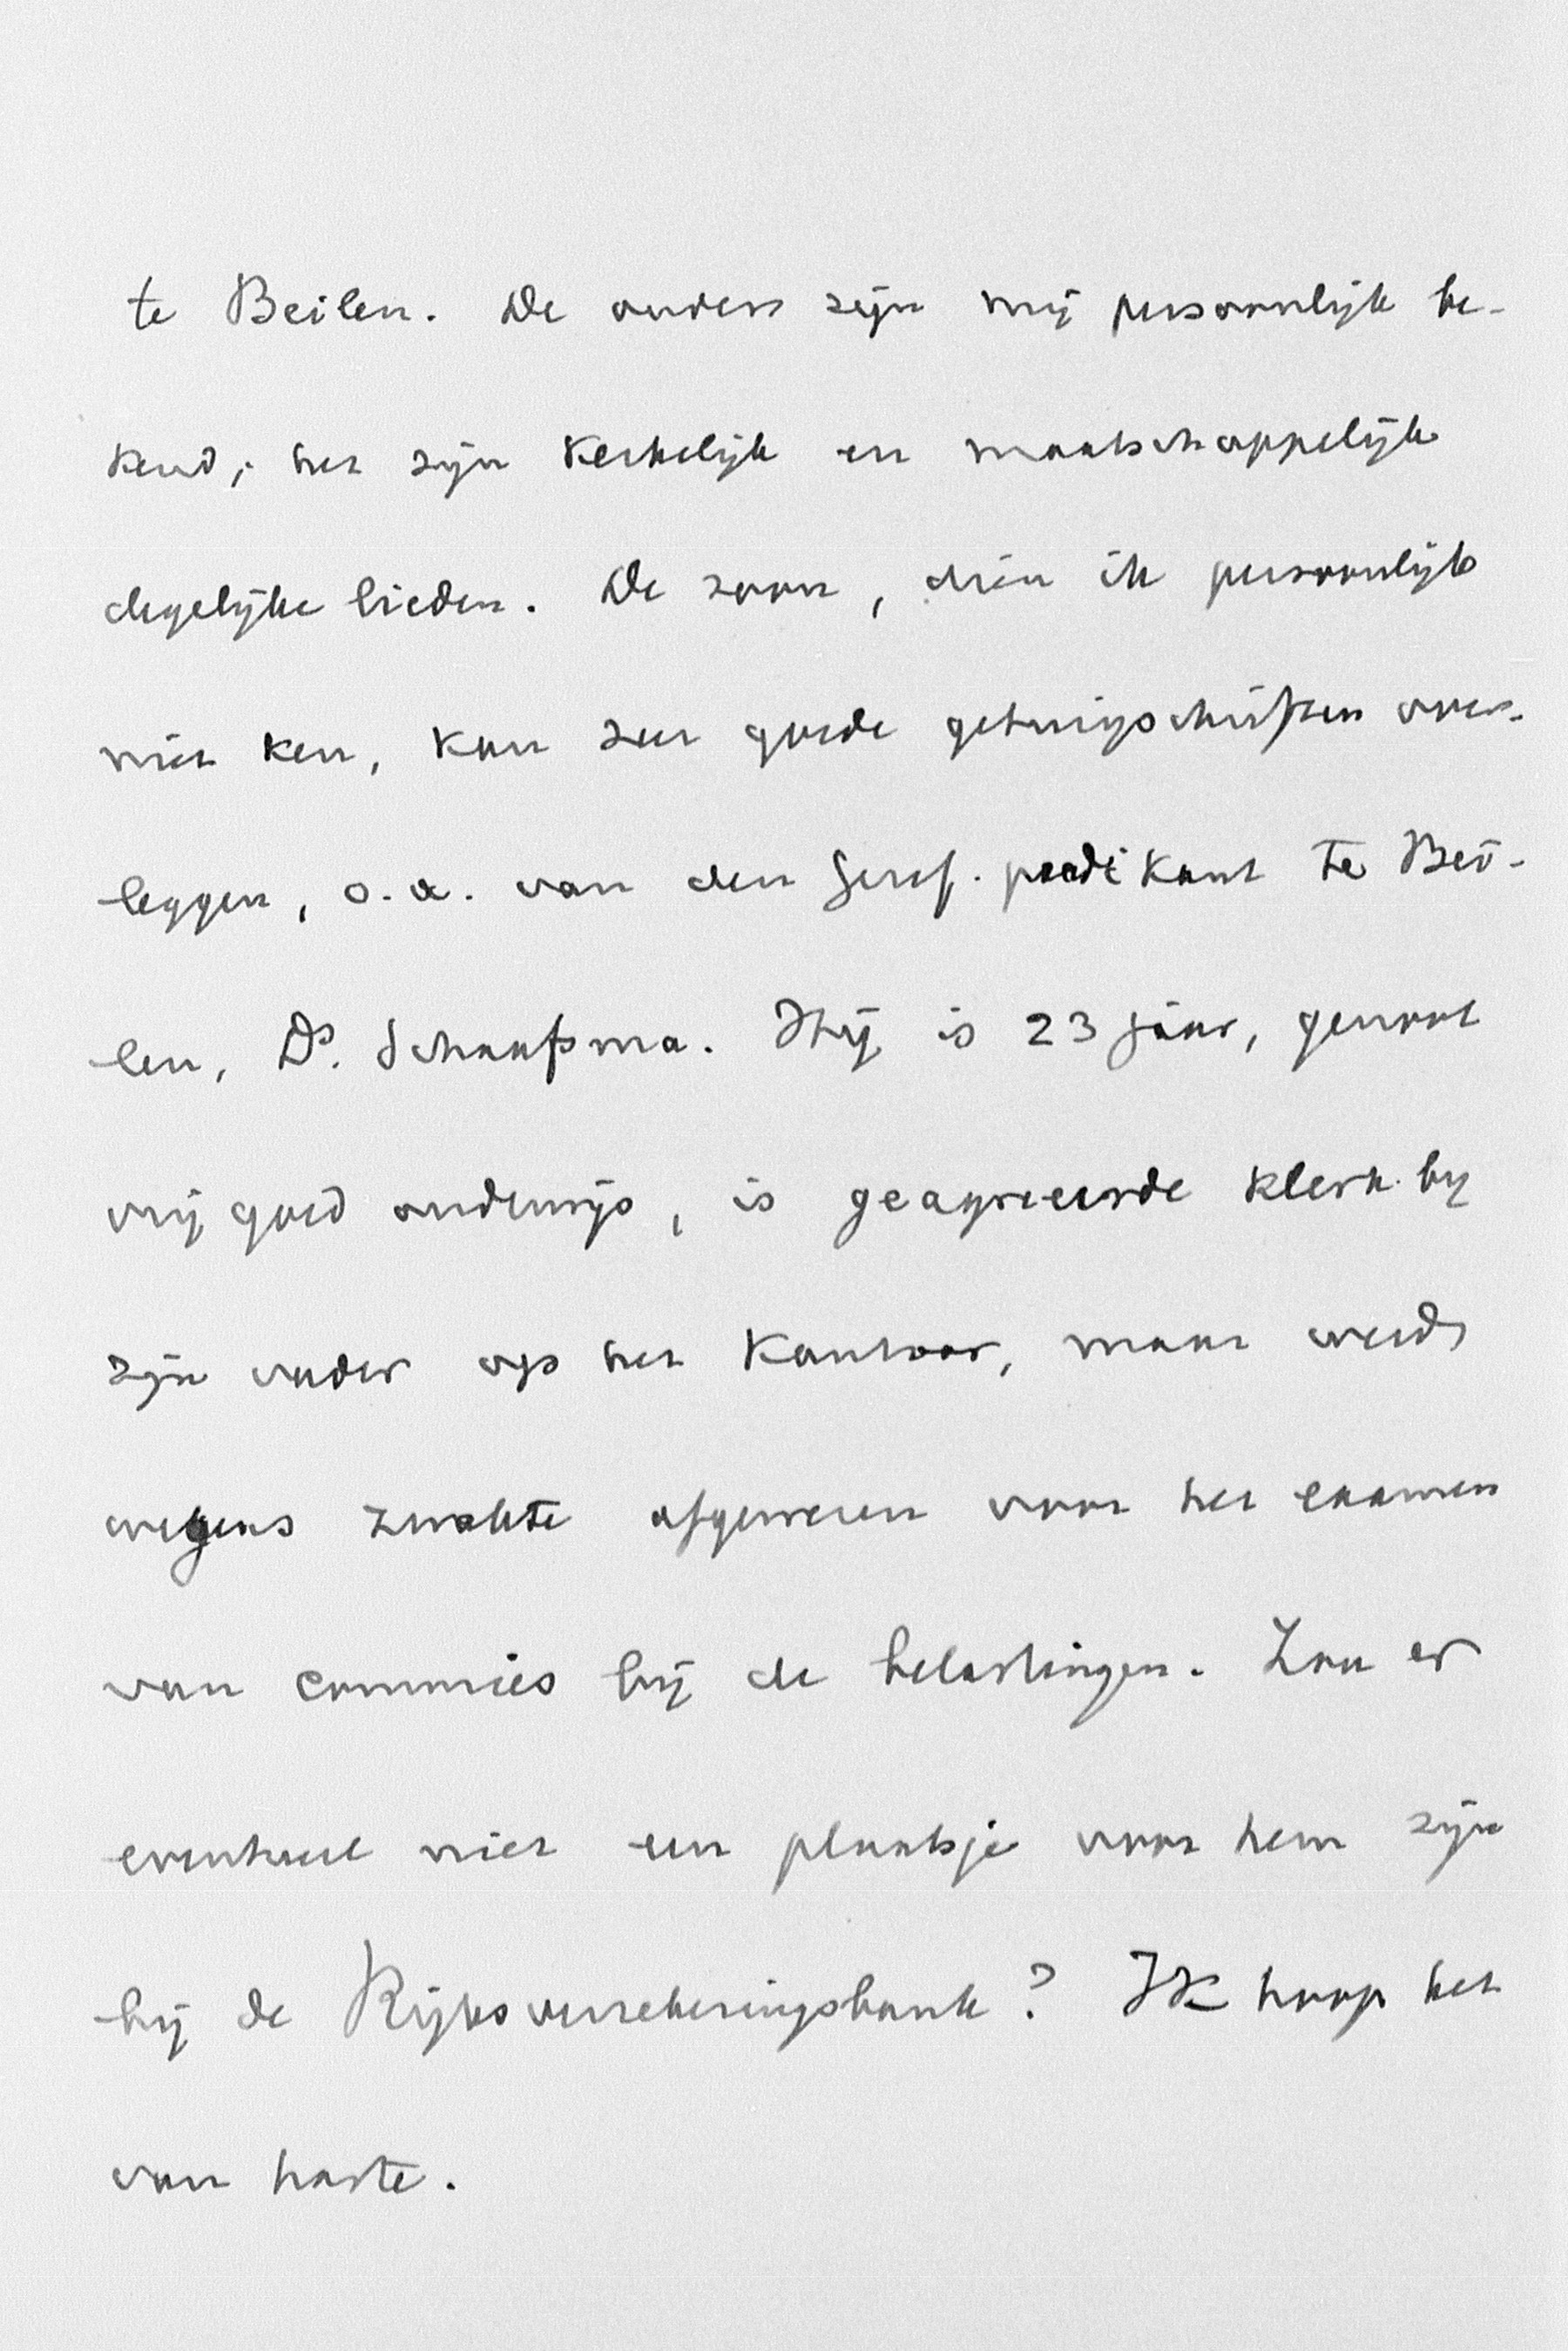 te Beilen. De ouders zijn mij persoonlijk be-
kend; het zijn kerkelijk en maatschappelijk
degelijke lieden. De zoon, dien ik persoonlijk
niet ken, kan zeer goede getuigschriften over-
leggen, o.a. van den Geref. predikant te Bei-
len, Ds. Schaafsma. Hij is 23 jaar, genoot
vrij goed onderwijs, is geagreëerde klerk by
zijn vader op het kantoor, maar werd
wegens zwakte afgewezen voor het examen
van commies bij de belastingen. Zou er
eventueel niet een plaatsje voor hem zijn
bij de Rijksverzekeringsbank? Ik hoop het
van harte.